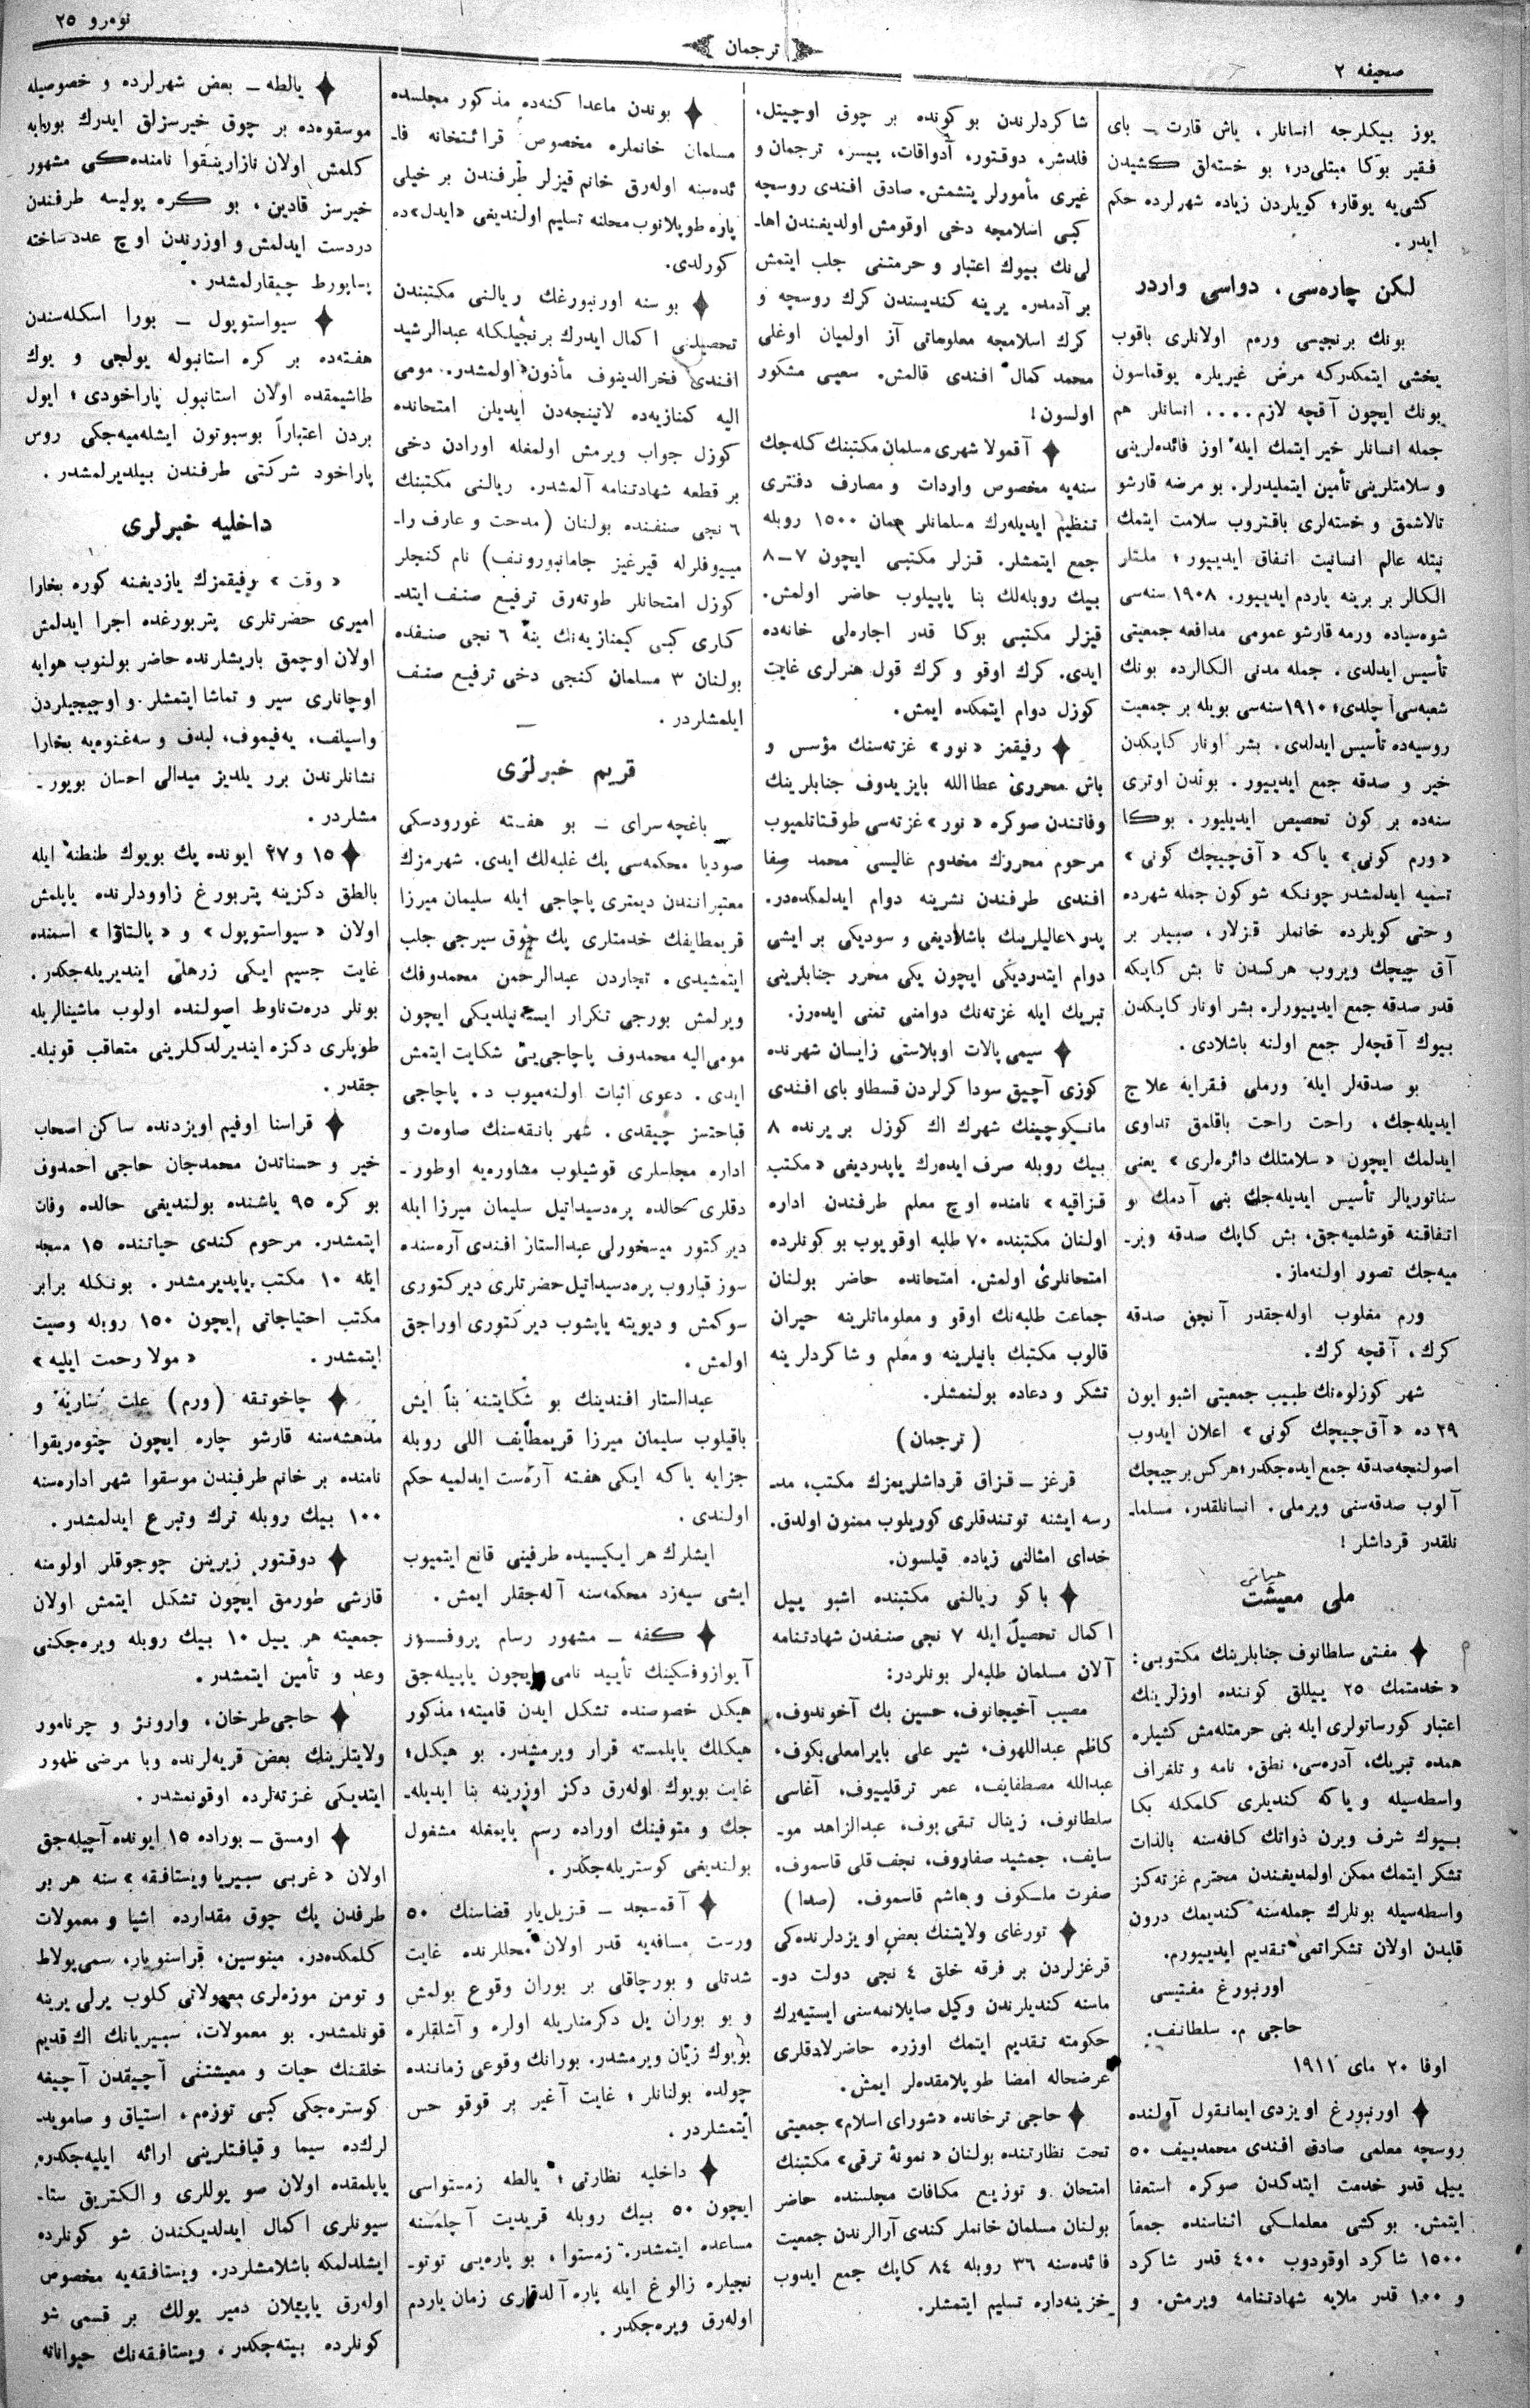 صحیفه ۲
ترجمان
نومرو ۲۵
یوز بیكلرجه انسانلر، یاش قارت ــ بای
فقیر بوكا مبتلی‌در؛ بو خسته‌لق كشیدن
كشی‌یه یوقار؛ كویلردن زیاده شهرلرده حكم
ایدر .
لكن چاره‌سی . دواسی واردر
بونك برنجیسی ورم اولانلری باقوب
یخشی ایتمكدركه مرض غیریلره یوقماسون
بونك ایچون آقچه لازم .... انسانلر هم
جمله انسانلر خیر ایتمك ایله اوز فائده‌لرینی
و سلامتلرینی تأمین ایتملیدرلر. بو مرضه قارشو
تالاشمق و خسته‌لری باقتروب سلامت ایتمك
نیتله عالم انسانیت اتفاق ایدییور ؛ ملتلر
الكالر بر برینه یاردم ایدییور. ۱۹۰۸ سنه‌سی
شوه‌سیاده ورمه قارشو عمومی مدافعه جمعیتی
تأسیس ایدلدی. جمله مدنی الكالرده بونك
شعبه‌سی آچلدی؛ ۱۹۱۰ سنه‌سی بویله بر جمعیت
روسیه‌ده تأسیس ایدلدی. بشر اونار كاپكدن
خیر و صدقه جمع ایدییور. بوندن اوتری
سنه‌ده بر كون تخصیص ایدیلیور. بوكا
«ورم كونی» یاكه «آق‌چیچك كونی»
تسمیه ایدلمشدر چونكه شو كون جمله شهرده
و حتی كویلرده خانملر قزلار، صبیلر بر
آق چیچك ویروب هركسدن تا بش كاپكه
قدر صدقه جمع ایدییورلر. بشر اونار كاپكدن
بیوك آقچه‌لر جمع اولنه باشلادی.
بو صدقه‌لر ایله ورملی فقرایه علاج
ایدیله‌جك، راحت راحت باقلمق تداوی
ایدلمك ایچون «سلامتلك دائره‌لری» یعنی
سناتوریالر تأسیس ایدیله‌جك بنی آدمك بو
اتفاقنه قوشلمیه‌جق، بش كاپك صدقه ویر-
میه‌جك تصور اولنه‌ماز.
ورم مغلوب اوله‌جقدر آنجق صدقه
كرك، آقچه كرك.
شهر كوزلوه‌نك طبیب جمعیتی اشبو ایون
۲۹ ده «آق‌چیچك كونی» اعلان ایدوب
اصولنجه صدقه جمع ایده‌جكدر؛ هر كس بر چیچك
آلوب صدقه‌سنی ویرملی. انسانلقدر، مسلما-
نلقدر قرداشلر!
ملی معیشت
✦ مفتی سلطانوف جنابلرینك مكتوبی:
«خدمتمك ۲۵ ییللق كوننده اوزلرینك
اعتبار كورساتولری ایله بنی حرمتله‌مش كشیلره
همده تبریك، آدره‌سی، نطق، نامه و تلغراف
واسطه‌سیله و یاكه كندیلری كلمكله بكا
بیوك شرف ویرن ذواتك كافه‌سنه بالذات
تشكر ایتمك ممكن اولمدیغندن محترم غزته‌كز
واسطه‌سیله بونلرك جمله‌سنه كندیمك درون
قلبدن اولان تشكراتمی تقدیم ایدییورم.
اورنبورغ مفتیسی
حاجی م. سلطانف.
اوفا ۲۰ مای ۱۹۱۱
✦ اورنبورغ اویزدی ایمانقول آولنده
روسچه معلمی صادق افندی محمدییف ۵۰
ییل قدر خدمت ایتدكدن صوكره استعفا
ایتمش. بو كشی معلملكی اثناسنده جمعاً
۱۵۰۰ شاكرد اوقودوب ۴۰۰ قدر شاكرد
و ۱۰۰ قدر ملایه شهادتنامه ویرمش. و
شاكردلرندن بو كونده بر چوق اوچیتل،
فلدشر، دوقتور، آدواقات، پیسر، ترجمان و
غیری مأمورلر یتشمش. صادق افندی روسچه
كبی اسلامجه دخی اوقومش اولدیغندن اها-
لی‌نك بیوك اعتبار و حرمتنی جلب ایتمش
بر آدمدر. یرینه كندیسندن كرك روسچه و
كرك اسلامجه معلوماتی آز اولمیان اوغلی
محمد كمال افندی قالمش. سعیی مشكور
اولسون!
✦ آقمولا شهری مسلمان مكتبنك كله‌جك
سنه‌یه مخصوص واردات و مصارف دفتری
تنظیم ایدیله‌رك مسلمانلر همان ۱۵۰۰ روبله
جمع ایتمشلر. قزلر مكتبی ایچون ۷ــ۸
بیك روبله‌لك بنا یاپیلوب حاضر اولمش.
قیزلر مكتبی بوكا قدر اجاره‌لی خانه‌ده
ایدی. كرك اوقو و كرك قول هنرلری غایت
كوزل دوام ایتمكده ایمش.
✦ رفیقمز «نور» غزته‌سنك مؤسس و
باش محرری عطاالله بایزیدوف جنابلرینك
وفاتندن صوكره «نور» غزته‌سی طوقتاتلمیوب
مرحوم محررك مخدوم عالیسی محمد صفا
افندی طرفندن نشرینه دوام ایدلمكده‌در.
پدر عالیلرینك باشلادیغی و سودیكی بر ایشی
دوام ایتدردیكی ایچون یكی محرر جنابلرینی
تبریك ایله غزته‌نك دوامنی تمنی ایده‌رز.
✦ سیمی پالات اوبلاستی زایسان شهرنده
كوزی آچیق سوداكرلردن قسطاو بای افندی
مانیكوچینك شهرك اك كوزل بر یرنده ۸
بیك روبله صرف ایده‌رك یاپدردیغی «مكتب
قزاقیه» نامنده اوچ معلم طرفندن اداره
اولنان مكتبنده ۷۰ طلبه اوقویوب بو كونلرده
امتحانلری اولمش. امتحانده حاضر بولنان
جماعت طلبه‌نك اوقو و معلوماتلرینه حیران
قالوب مكتبك بانیلرینه و معلم و شاكردلرینه
تشكر و دعاده بولنمشلر.
(ترجمان)
قرغز ــ قزاق قرداشلریمزك مكتب، مد-
رسه ایشنه توتندقلری كوریلوب ممنون اولدق.
خدای امثالنی زیاده قیلسون.
✦ باكو ریالنی مكتبنده اشبو ییل
اكمال تحصیل ایله ۷ نجی صنفدن شهادتنامه
آلان مسلمان طلبه‌لر بونلردر:
مصیب آخیجانوف، حسین بك آخوندوف،
كاظم عبداللهوف، شیر علی بایرامعلی‌بكوف،
عبدالله مصطفایف، عمر ترقلییوف، آغاسی
سلطانوف، زینال تقی بوف، عبدالزاهد مو-
سایف، جمشید صفاروف، نجف قلی قاسموف،
صفوت ملكوف و هاشم قاسموف. (صدا)
✦ تورغای ولایتنك بعض اویزدلرنده‌كی
قرغزلردن بر فرقه خلق ٤ نجی دولت دو-
ماسنه كندیلرندن وكیل صایلانمه‌سنی ایستیه‌رك
حكومته تقدیم ایتمك اوزره حاضرلادقلری
عرضحاله امضا طوپلامقده‌لر ایمش.
✦ حاجی ترخانده «شورای اسلام» جمعیتی
تحت نظارتنده بولنان «نمونهٔ ترقی» مكتبنك
امتحان و توزیع مكافات مجلسنده حاضر
بولنان مسلمان خانملر كندی آرالرندن جمعیت
فائده‌سنه ۳۶ روبله ۸۴ كاپك جمع ایدوب
خزینه‌داره تسلیم ایتمشلر.
✦ بوندن ماعدا كنه‌ده مذكور مجلسده
مسلمان خانملره مخصوص قرائتخانه فا-
ئده‌سنه اوله‌رق خانم قیزلر طرفندن بر خیلی
پاره طوپلانوب محلنه تسلیم اولندیغی «ایدل»ده
كورلدی.
✦ بو سنه اورنبورغك ریالنی مكتبندن
تحصیلنی اكمال ایدرك برنجیلكله عبدالرشید
افندی فخرالدینوف مأذون اولمشدر. مومی
الیه كمنازیه‌ده لاتینجه‌دن ایدیلن امتحانده
كوزل جواب ویرمش اولمغله اورادن دخی
بر قطعه شهادتنامه آلمشدر. ریالنی مكتبنك
۶ نجی صنفنده بولنان (مدحت و عارف را-
میوفلرله قیرغیز جامانبورونف) نام كنجلر
كوزل امتحانلر طوته‌رق ترفیع صنف ایتد-
كلری كبی كیمنازیه‌نك ینه ۶ نجی صنفده
بولنان ۳ مسلمان كنجی دخی ترفیع صنف
ایلمشلردر .
قریم خبرلری
باغچه‌سرای ــ بو هفته غورودسكی
صودیا محكمه‌سی پك غلبه‌لك ایدی. شهرمزك
معتبرانندن دیمتری پاچاجی ایله سلیمان میرزا
قریمطایفك خدمتلری پك چوق سیرجی جلب
ایتمشیدی. تجاردن عبدالرحمن محمدوفك
ویرلمش بورجی تكرار ایستنیلدیكی ایچون
مومی‌الیه محمدوف پاچاجی‌یی شكایت ایتمش
ایدی. دعوی اثبات اولنه‌میوب د. پاچاجی
قباحتسز چیقدی. شهر بانقه‌سنك صاوه‌ت و
اداره مجلسلری قوشیلوب مشاوره‌یه اوطور-
دقلری حالده پره‌دسیداتیل سلیمان میرزا ایله
دیركتور میسخورلی عبدالستار افندی آره‌سنده
سوز قباروب پره‌دسیداتیل حضرتلری دیركتوری
سوكمش و دیویته یاپشوب دیركتوری اوراجق
اولمش.
عبدالستار افندینك بو شكایتنه بناً ایش
باقیلوب سلیمان میرزا قریمطایف اللی روبله
جزایه یاكه ایكی هفته آره‌ست ایدلمیه حكم
اولندی.
ایشلرك هر ایكیسیده طرفینی قانع ایتمیوب
ایشی سیه‌زد محكمه‌سنه آله‌جقلر ایمش.
✦ كفه ــ مشهور رسام پروفسسور
آیوازوفسكینك تأیید نامی ایچون یاپیله‌جق
هیكل خصوصنده تشكل ایدن قامیته؛ مذكور
هیكلك یاپلمسنه قرار ویرمشدر. بو هیكل؛
غایت بویوك اوله‌رق دكز اوزرینه بنا ایدیله-
جك و متوفینك اوراده رسم یاپمغله مشغول
بولندیغی كوستریله‌جكدر.
✦ آقمسجد ــ قزیل‌یار قضاسنك ۵۰
ورست مسافه‌یه قدر اولان محللرنده غایت
شدتلی و بورچاقلی بر بوران وقوع بولمش
و بو بوران یل دكرمنلریله اولره و آشلقلره
بویوك زیان ویرمشدر. بورانك وقوعی زماننده
چولده بولنانلر؛ غایت آغیر بر قوقو حس
ایتمشلردر.
✦ داخلیه نظارتی؛ یالطه زمستواسی
ایچون ۵۰ بیك روبله قریدیت آچلمسنه
مساعده ایتمشدر. زمستوا، بو پاره‌یی توتو-
نجیلره زالوغ ایله پاره آلدقلری زمان یاردم
اوله‌رق ویره‌جكدر.
✦ یالطه ــ بعض شهرلرده و خصوصیله
موسقوه‌ده بر چوق خیرسزلق ایدرك بورایه
كلمش اولان نازارینقوا نامنده‌كی مشهور
خیرسز قادین، بو كره پولیسه طرفندن
دردست ایدلمش و اوزرندن اوچ عدد ساخته
پاپورط چیقارلمشدر.
✦ سیواستوپول ــ بورا اسكله‌سندن
هفته‌ده بر كره استانبوله یولجی و یوك
طاشیمقده اولان استانبول پاراخودی؛ ایول
بردن اعتباراً بوسبوتون ایشله‌میه‌جكی روس
پاراخود شركتی طرفندن بیلدیرلمشدر.
داخلیه خبرلری
«وقت» رفیقمزك یازدیغنه كوره بخارا
امیری حضرتلری پتربورغده اجرا ایدلمش
اولان اوچمق باریشلرنده حاضر بولنوب هوایه
اوچانلری سیر و تماشا ایتمشلر. و اوچیجیلردن
واسیلف، یه‌فیموف، لبدف و سه‌غنوه‌یه بخارا
نشانلرندن برر یلدیز میدالی احسان بویور-
مشلردر.
✦ ۱۵ و ۲۷ ایونده پك بویوك طنطنه ایله
بالطق دكزینه پتربورغ زاوودلرنده یاپلمش
اولان «سیواستوپول» و «پالتاوا» اسمنده
غایت جسیم ایكی زرهلی ایندیریله‌جكدر.
بونلر دره‌تناوط اصولنده اولوب ماشینالریله
طوپلری دكزه ایندیرلدكلرینی متعاقب قونیله-
جقدر.
✦ قراسنا اوفیم اویزدنده ساكن اصحاب
خیر و حسناتدن محمدجان حاجی احمدوف
بو كره ۹۵ یاشنده بولندیغی حالده وفات
ایتمشدر. مرحوم كندی حیاتنده ۱۵ مسجد
ایله ۱۰ مكتب یاپدیرمشدر. بونكله برابر
مكتب احتیاجاتی ایچون ۱۵۰ روبله وصیت
ایتمشدر. «مولا رحمت ایلیه»
✦ چاخوتقه (ورم) علت ساریه و
مدهشه‌سنه قارشو چاره ایچون چتوه‌ریقوا
نامنده بر خانم طرفندن موسقوا شهر اداره‌سنه
۱۰۰ بیك روبله ترك و تبرع ایدلمشدر.
✦ دوقتور زیرینن چوجوقلر اولومنه
قارشی طورمق ایچون تشكل ایتمش اولان
جمعیته هر ییل ۱۰ بیك روبله ویره‌جكنی
وعد و تأمین ایتمشدر.
✦ حاجی‌طرخان، وارونژ و چرنامور
ولایتلرینك بعض قریه‌لرنده وبا مرضی ظهور
ایتدیكی غزته‌لرده اوقونمشدر.
✦ اومسق ــ بوراده ۱۵ ایونده آچیله‌جق
اولان «غربی سیبیریا ویستافقه» سنه هر بر
طرفدن پك چوق مقدارده اشیا و معمولات
كلمكده‌در. مینوسین، قراسنویار، سمی‌پولاط
و تومن موزه‌لری معمولاتی كلوب یرلی یرینه
قونلمشدر. بو معمولات، سیبیریانك اك قدیم
خلقنك حیات و معیشتنی آچیقدن آچیغه
كوستره‌جكی كبی توزه‌م، استیاق و صامویید-
لرك‌ده سیما و قیافتلرینی ارائه ایلیه‌جكدر.
یاپلمقده اولان صو یوللری و الكتریق ستا-
سیونلری اكمال ایدلدیكندن شو كونلرده
ایشلدلمكه باشلامشلردر. ویستافقه‌یه مخصوص
اوله‌رق یاپیلان دمیر یولك بر قسمی شو
كونلرده بیته‌جكدر، ویستافقه‌نك حیواناته